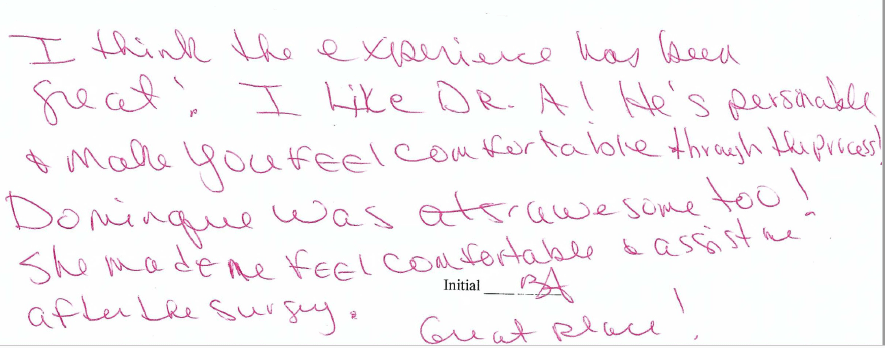 I think the experience has been
great! I Like DR. A! He's personable
& make you feel comfortable through the process!
Dominque was awesome too!
She made me feel comfortable & assist me
after the surgey.
Initial BA
Great place!